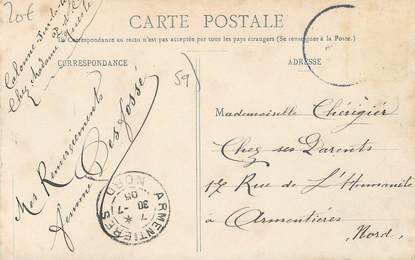 20€
CARTE POSTALE
La Correspondance au recto n'est pas acceptée par tous les pays étrangers (Se renseigner à la Poste.)
CORRESPONDANCE
ADRESSE
59
Colonne
Chez Madame
Mes Remerciements
femme Desfosse
ARMENTIERES
7
30 -7
05
NORD
Mademoiselle Cherigier
Chez ses Parents
17 Rue de L'Humanité
à Armentières
Nord.